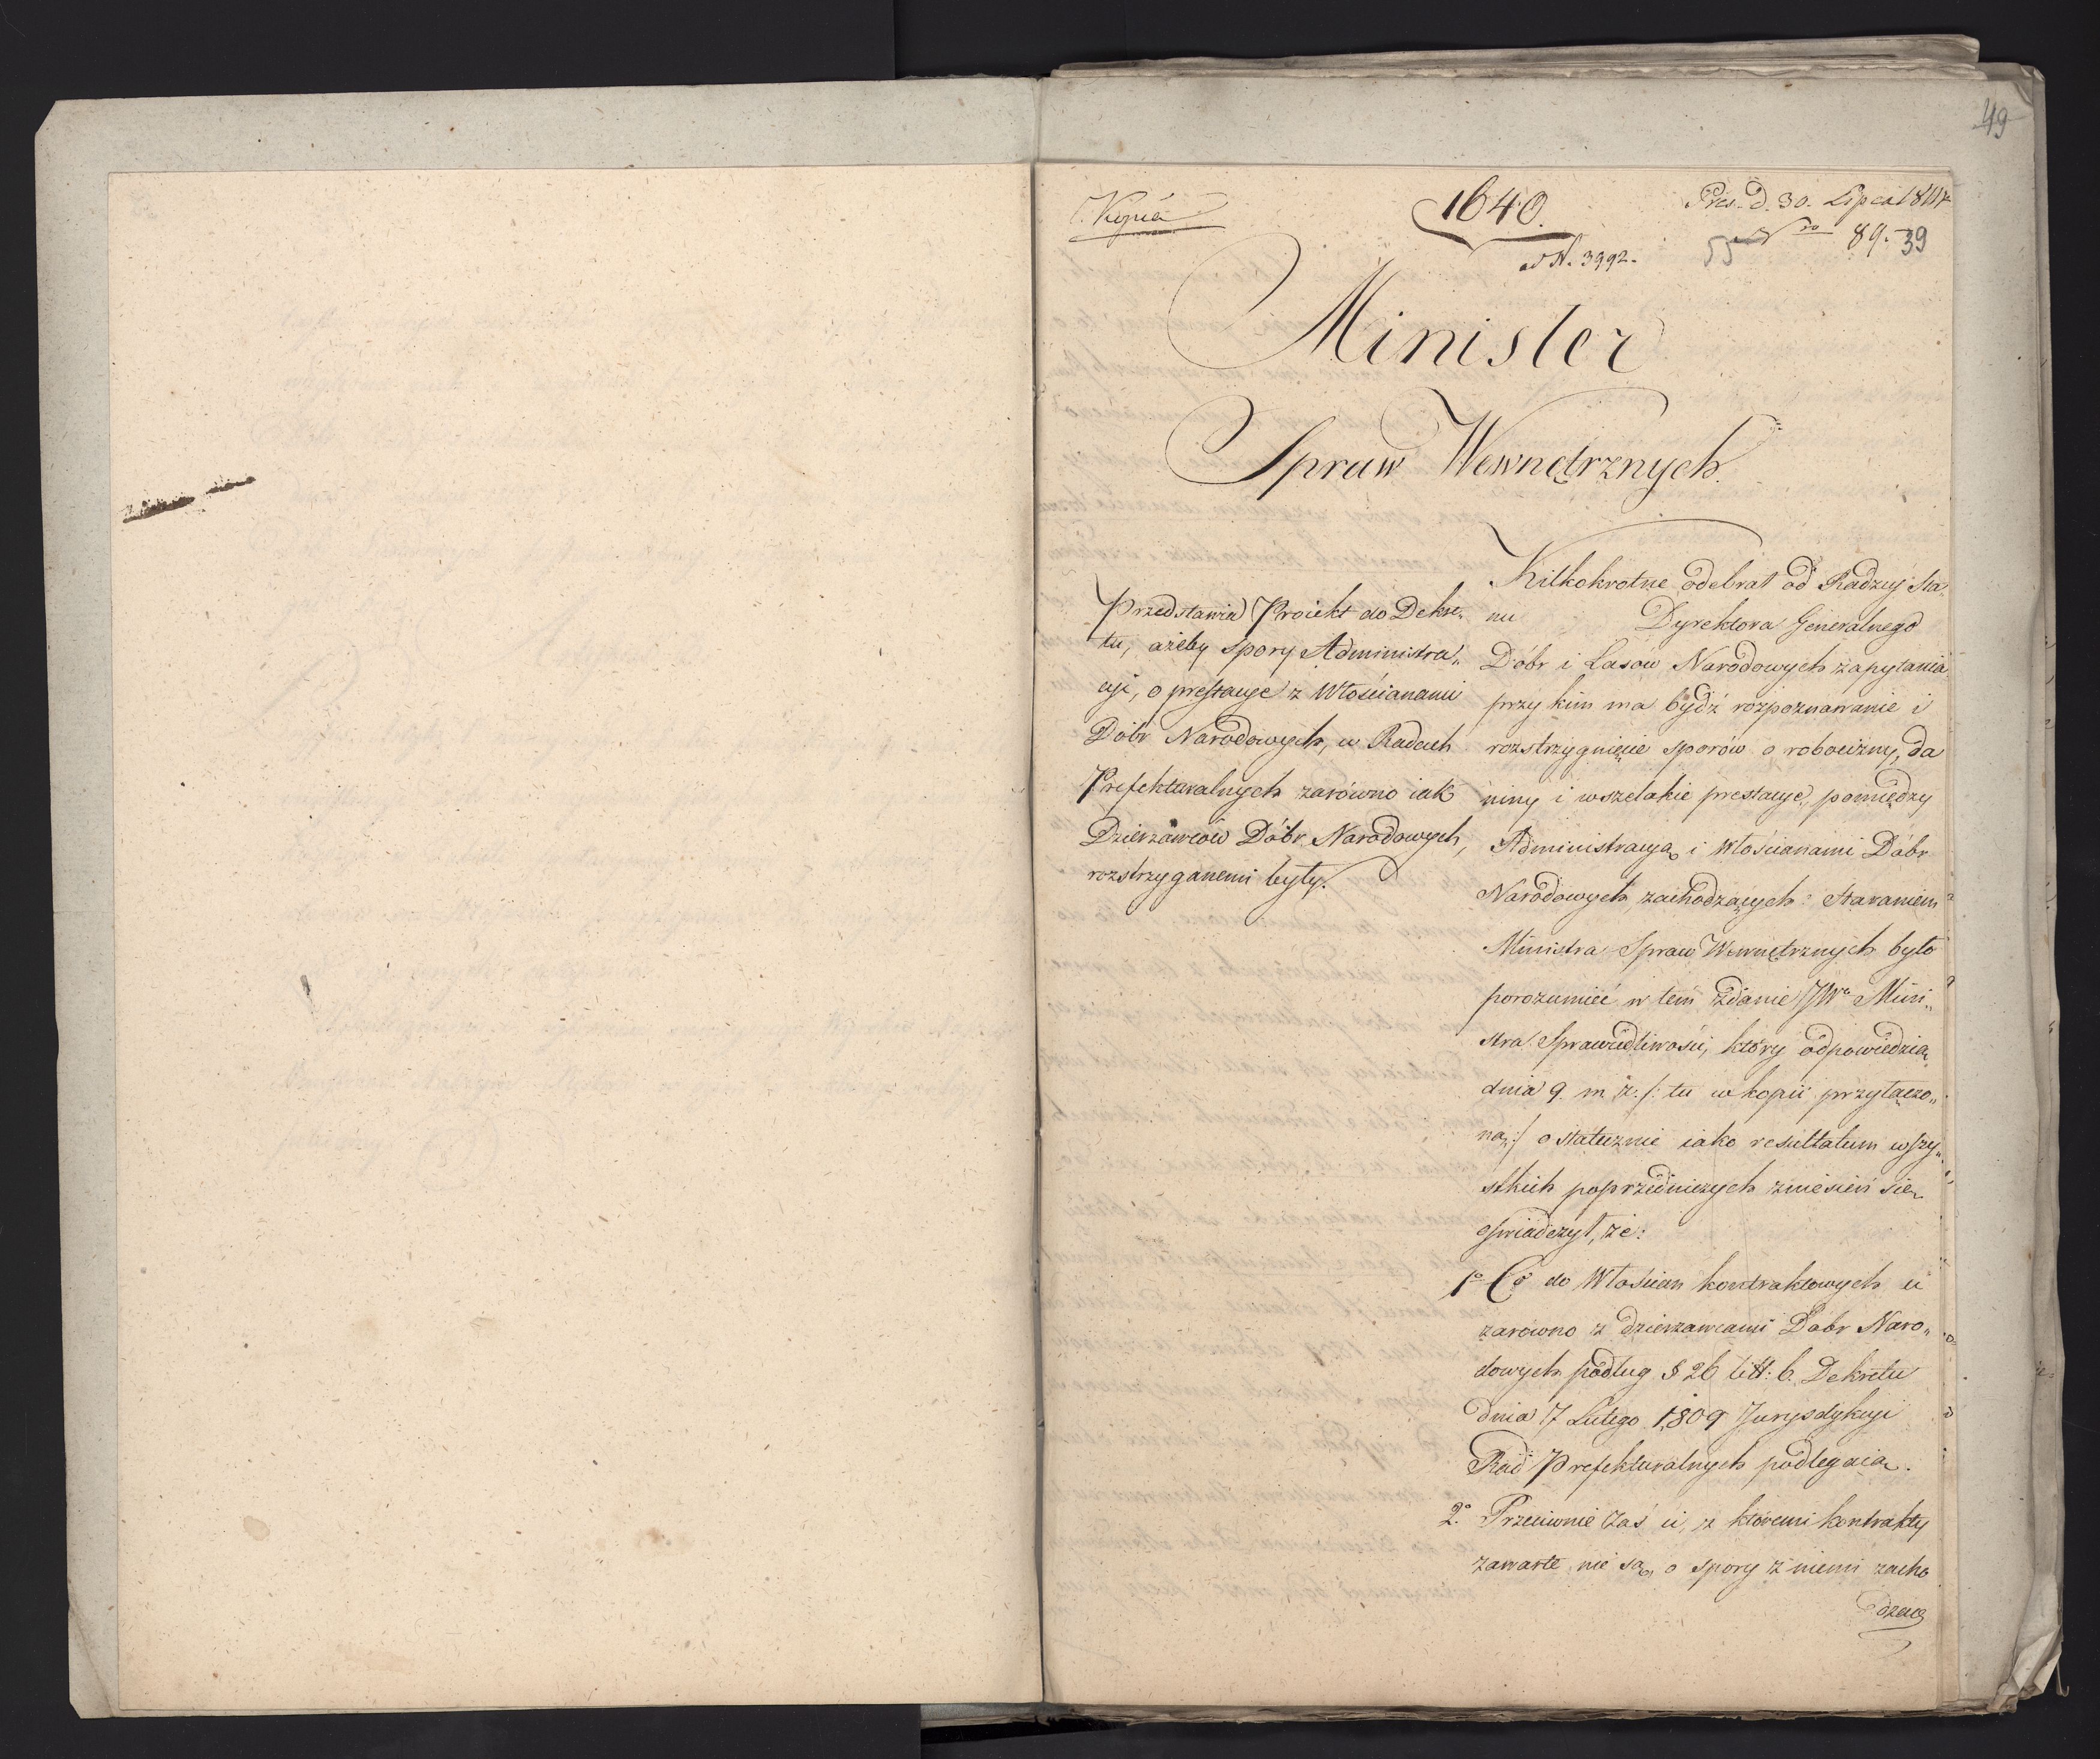 49
Kopia
1640.
ad N. 3992.
Pres. d. 30. Lipca
Nro 89. 39
55
Minister
Spraw Wewnętrznych.
Przedstawia Proiekt do Dekre„
tu, ażeby spory Administra„
cyi, o prestacye z Włościanami
Dóbr Narodowych, w Radach
Prefekturalnych zarówno iak
Dzierżawców Dóbr Narodowych,
rozstrzyganemi były.
Kilkokrotne odebrał od Radzcy Sta„
nu Dyrektora Generalnego
Dóbr i Lasów Narodowych zapytania
przy kim ma bydź rozpoznawanie i
rozstrzygnięcie sporów o robocizny, da
niny i wszelakie prestacye, pomiędzy
Administracyą i Włościanami Dóbr
Narodowych zachodzących: Staraniem
Ministra Spraw Wewnętrznych było
porozumieć w tem zdanie JWo Mini„
stra Sprawiedliwości, który odpowiedzią
dnia 9. m. b. /: tu w kopii przyłączo„
ną :/ ostatecznie iako resultatum wszy„
stkich poprzedniczych zniesień się
oświadczył, że:
1o Co do Włościan kontraktowych ci
zarówno z dzierzawcami Dóbr Naro„
dowych podług § 26 litt: b. Dekretu
dnia 7 Lutego 1809 Jurysdykcyi
Rad Prefekturalnych podlegaią.
2o Przeciwnie zaś ci, z któremi kontrakty
zawarte nie są, o spory z niemi zacho
dzące